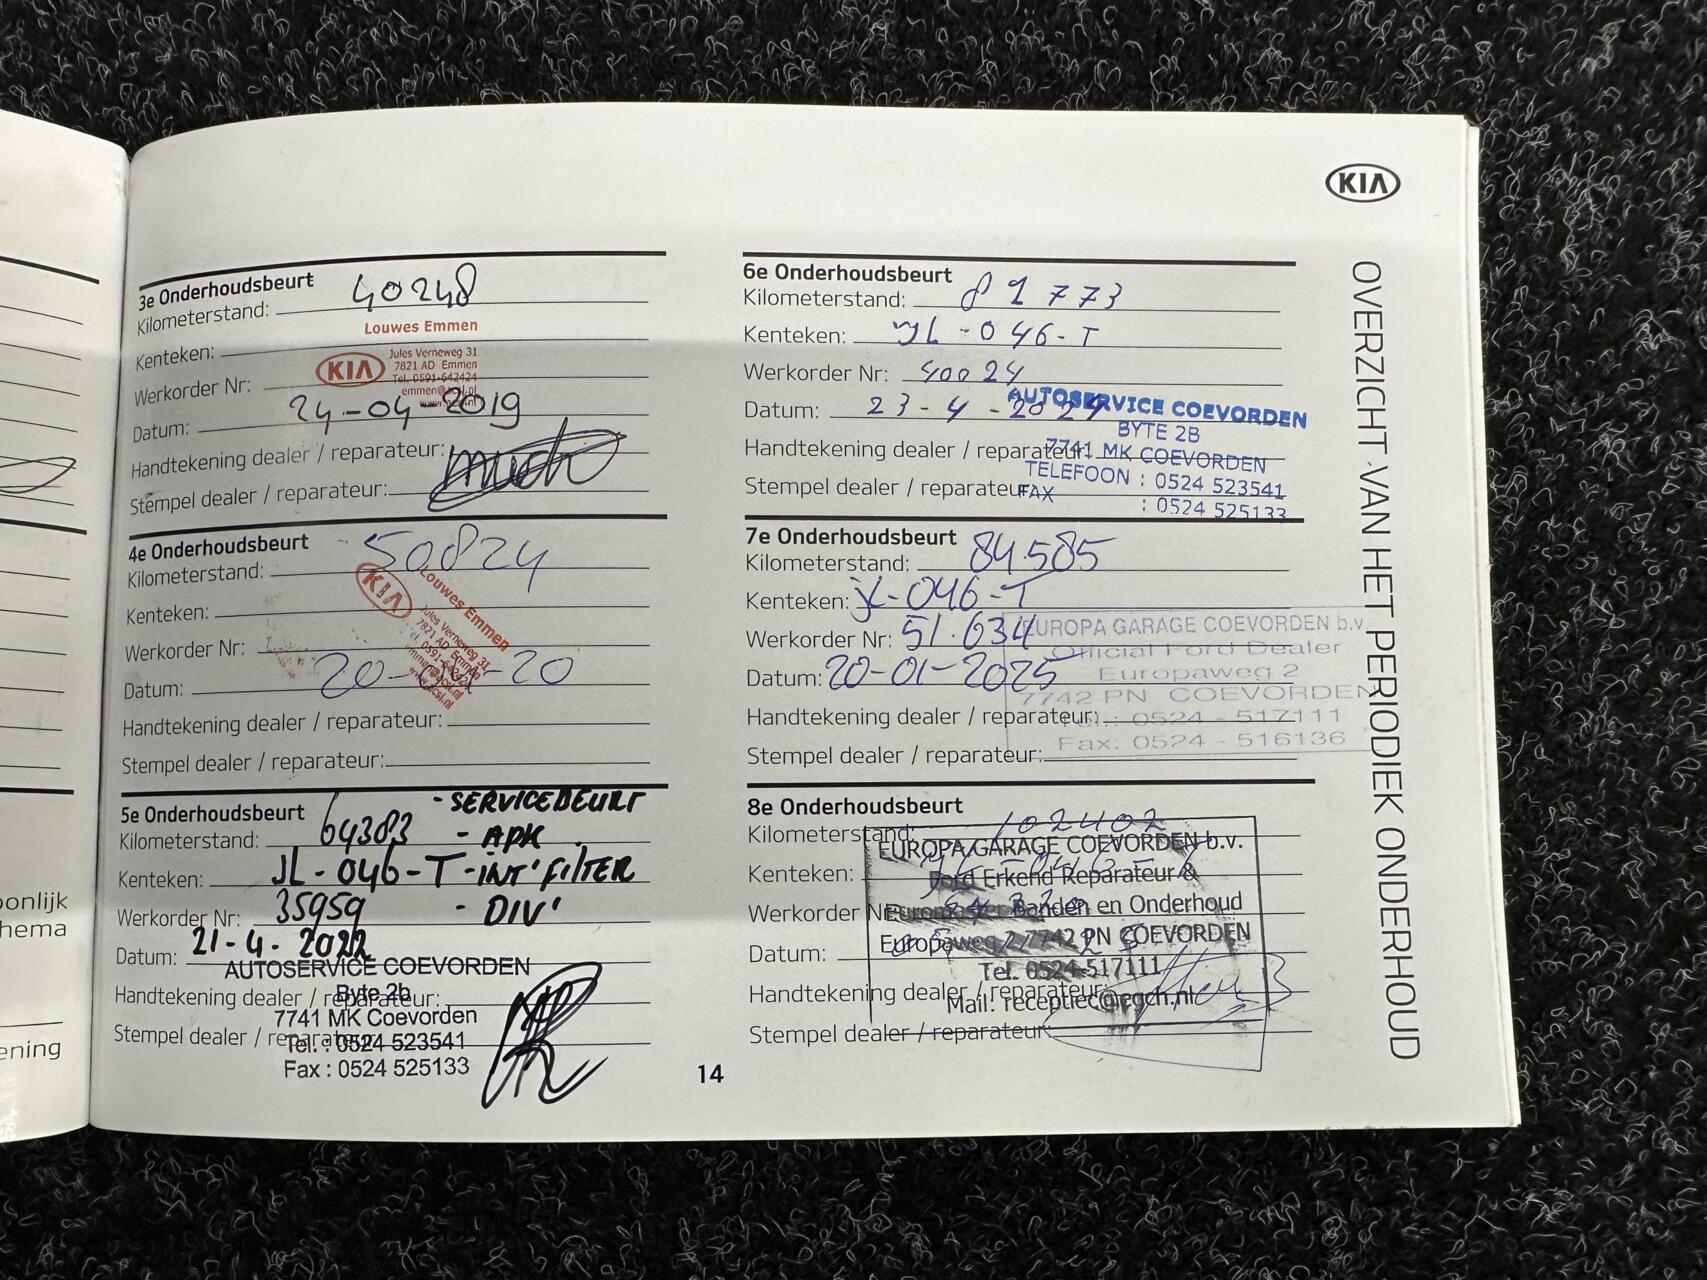 oonlijk
hema
ening
KIA
OVERZICHT VAN HET PERIODIEK ONDERHOUD
3e Onderhoudsbeurt
Kilometerstand: 40248
Louwes Emmen
KIA
Jules Verneweg 31
7821 AD Emmen
Tel. 0591-642424
Kenteken:
Werkorder Nr:
Datum: 24-04-2019
Handtekening dealer / reparateur:
Stempel dealer / reparateur:
4e Onderhoudsbeurt
Kilometerstand: 50824
KIA
Louwes Emmen
Jules Verneweg 31
7821 AD Emmen
Kenteken:
Werkorder Nr:
Datum: 20- -20
Handtekening dealer / reparateur:
Stempel dealer / reparateur:
5e Onderhoudsbeurt - SERVICEBEURT
Kilometerstand: 64383 - APK
Kenteken: JL-046-T - INT' FILTER
Werkorder Nr: 35959 - DIV'
Datum: 21-4-2022
AUTOSERVICE COEVORDEN
Handtekening dealer / reparateur:
Byte 2b
7741 MK Coevorden
Stempel dealer / reparateur:
Tel. : 0524 523541
Fax : 0524 525133
6e Onderhoudsbeurt
Kilometerstand: 81773
Kenteken: JL-046-T
Werkorder Nr: 40024
Datum: 23-4-2024
AUTOSERVICE COEVORDEN
BYTE 2B
Handtekening dealer / reparateur:
7741 MK COEVORDEN
TELEFOON : 0524 523541
Stempel dealer / reparateur:
FAX : 0524 525133
7e Onderhoudsbeurt
Kilometerstand: 84.585
Kenteken: JL-046-T
Werkorder Nr: 51.634
EUROPA GARAGE COEVORDEN b.v.
Official Ford Dealer
Datum: 20-01-2025
Europaweg 2
7742 PN COEVORDEN
Handtekening dealer / reparateur:
Tel.: 0524 - 517111
Fax: 0524 - 516136
Stempel dealer / reparateur:
8e Onderhoudsbeurt
Kilometerstand: 102402
EUROPA GARAGE COEVORDEN b.v.
Kenteken:
Ford Erkend Reparateur &
Werkorder Nr:
Euromaster Banden en Onderhoud
Datum:
Europaweg 2 7742 PN COEVORDEN
Tel. 0524-517111
Handtekening dealer / reparateur:
Mail: receptie@egch.nl
Stempel dealer / reparateur:
14